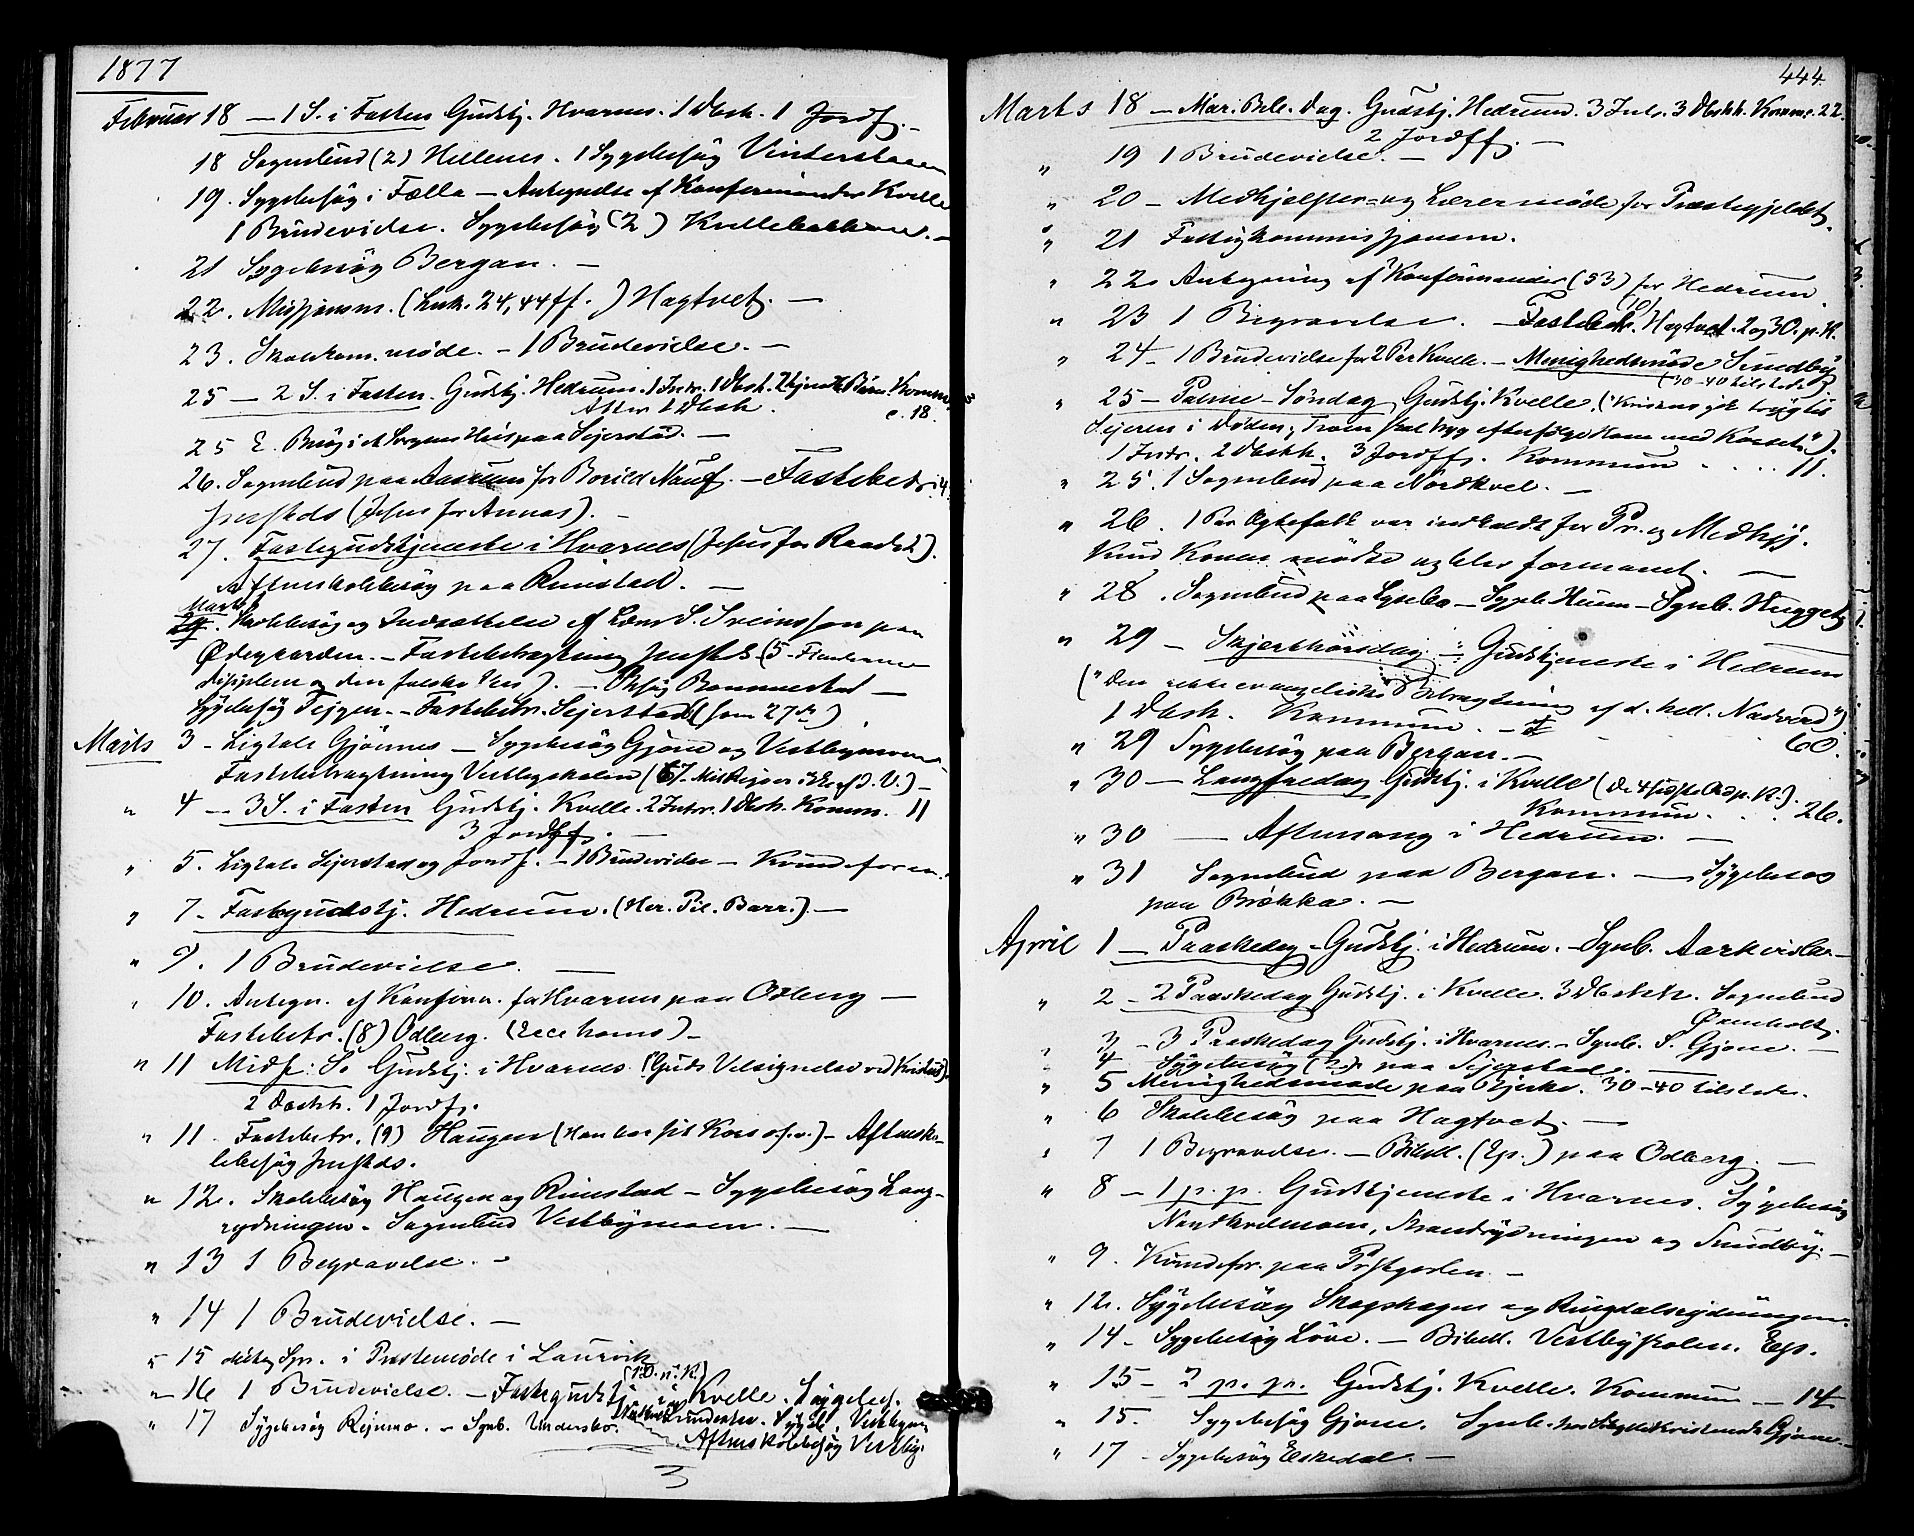 1877
Februar 18 — 1 S. i Fasten Gudstj. Hvarnes. 1 Dbsh. 1 Jordf. —
18 Sognebud (2) Hellenes. 1 Sygebesøg
19. Sygebesøg i Fælla — Antegnelse af Konfirmander Kvelle
1 Brudevielse. Sygebesøg (2) Kvellebakkene. —
21 Sygebesøg Bergan. —
22. Missionsm. (Luk. 24,44 ff.) Hagtvet. —
23. Skolekom. møde. — 1 Brudevielse. —
25 — 2 S. i Fasten. Gudstj. Hedrum. 1 Intr. 1 Dbsh. Komm.
After 1 Dbsh. c. 18.
25 E. Besøg i et Sorgens Huus paa Sejerstad. —
26. Sognebud paa for — Fastebetr. 4
(Jesus for Annas). —
27. Fastegudstjeneste i Hvarnes (Jesus for Raadet).
Aftenskolebesøg paa Rimstad. —
Marts
Skolebesøg og Indsættelse af Lærer S. Sveinsson paa
Ødegaarden. — Fastebetragtning (5
disciplene og den falske). — Besøg Bommestad —
Sygebesøg Tejgen. — Fastebetr. Sejerstad (som 27de)
Marts 3 — Ligtale Gjønnes — Sygebesøg Gjone og Vestbymoen.
Fastebetragtning Vestbyskolen (Mit Rige er ikke af d. V.) —
" 4 — 3 S. i Fasten Gudstj. Kvelle. 2 Intr. 1 Dbsh. Komm. 11
3 Jordff. —
" 5. Ligtale Sejerstad og Jordf. — 1 Brudevielse — Kvindeforen.
" 7 — Fastegudstj. Hedrum. (Her. Pil. Barr.). —
" 9. 1 Brudevielse. —
" 10. Antegn. af Konfirm. for Hvarnes paa Odberg —
Fastebetr. (8) Odberg. (Ecce homo) —
" 11 Midf: S. Gudstj. i Hvarnes. ("Guds Velsignelse ved Kristus")
2 Dbshh. 1 Jordf.
" 11. Fastebetr. (9) Haugen (Han bar sit Kors o.s.v.) — Aftensko-
lebesøg
" 12. Skolebesøg Haugen og Rimstad — Sygebesøg Lang-
rydningen. Sognebud Vestbymoen. —
" 13 1 Begravelse. —
" 14 1 Brudevielse. —
" 15 deltog Spr. i Prestemøde i Laurvik
" 16 1 Brudevielse. — Fastegudstj. i Kvelle. Sygebes.
" 17 Sygebesøg Rejmo. — Sgnb. Undersbo.
Aftenskolebesøg Vestby.
3
444.
Marts 18 — Mar. Beb. Dag. Gudstj. Hedrum. 3 Intr. 3 Dbshh. Komm. c. 22.
2 Jordff. —
" 19 1 Brudevielse. —
" 20 — Medhjelper- og Lærermøde for Præstegjeldet.
" 21 Fattigkommissjonsm.
" 22. Antegning af Konfirmander (53) for Hedrum.
" 23 1 Begravelse. — Fastebetr. (10) Hagtvet. 2 og 3 O. p. K.
" 24 — 1 Brudevielse for 2 Par Kvelle. — Menighedsmøde Smedby
(30-40 tilstede)
" 25 — Palme-Søndag Gudstj. Kvelle. ("Kristus gik tryglig
Sejeren i Døden; Troen skal tryg efterfølge Ham med Korset").
1 Intr. 2 Dbshh. 3 Jordff. Kommun . . . . 11.
" 25. 1 Sognebud paa Nordkvel. —
" 26. 1 Par Ægtefolk var indkaldt for Pr. og Medhjj.
Kun Konen mødte og blev formanet. —
" 28. Sognebud paa Lysebo — Sygeb. Huum — Sgnb. Nugget
" 29 — Skjerthorsdag — Gudstjeneste i Hedrum
("Den rette evangeliske Betragtning af d. hell. Nadverd")
1 Dbsh. Kommun. — 60.
" 29 Sygebesøg paa Bergan. —
" 30 — Langfredag Gudstj. i Kvelle (De 4 sidste Ord p. K.).
Kommun. . . 26.
" 30 — Aftensang i Hedrum. —
" 31 Sognebud paa Bergan. — Sygebesøg
paa Brekka. —
April 1 — Paaskedag — Gudstj. i Hedrum. — Sgnb. —
" 2 — 2 Paaskedag Gudstj. i Kvelle. 3 Dbshh. Sognebud
Ørenholt.
" 3 — 3 Paaskedag Gudstj. i Hvarnes. — Sgnb. S. Gjone. —
" 4 Sygebesøg (2) paa Sejerstad. —
" 5 Menighedsmøde paa Bjerke. 30-40 tilstede.
" 6 Skolebesøg paa Hagtvet. —
" 7 1 Begravelse. — Bibell. (Ep.) paa Odberg. —
" 8 — 1 p. p. Gudstjeneste i Hvarnes. Sygebesøg
Nordkvelmoen, Strandrydningen og Smedby. —
" 9. Kvindefor. paa Prstgården. —
" 12. Sygebesøg Skogshagen og Ringdalsrydningen.
" 14 — Sygebesøg Løve. — Bibell. Vestbyskolen. Ep.
" 15 — 2 p. p. Gudstj. Kvelle. Kommun — 14
" 15. Sygebesøg Gjone. Sgnb. Gjone —
" 17 — Sygebesøg Eskedal. —